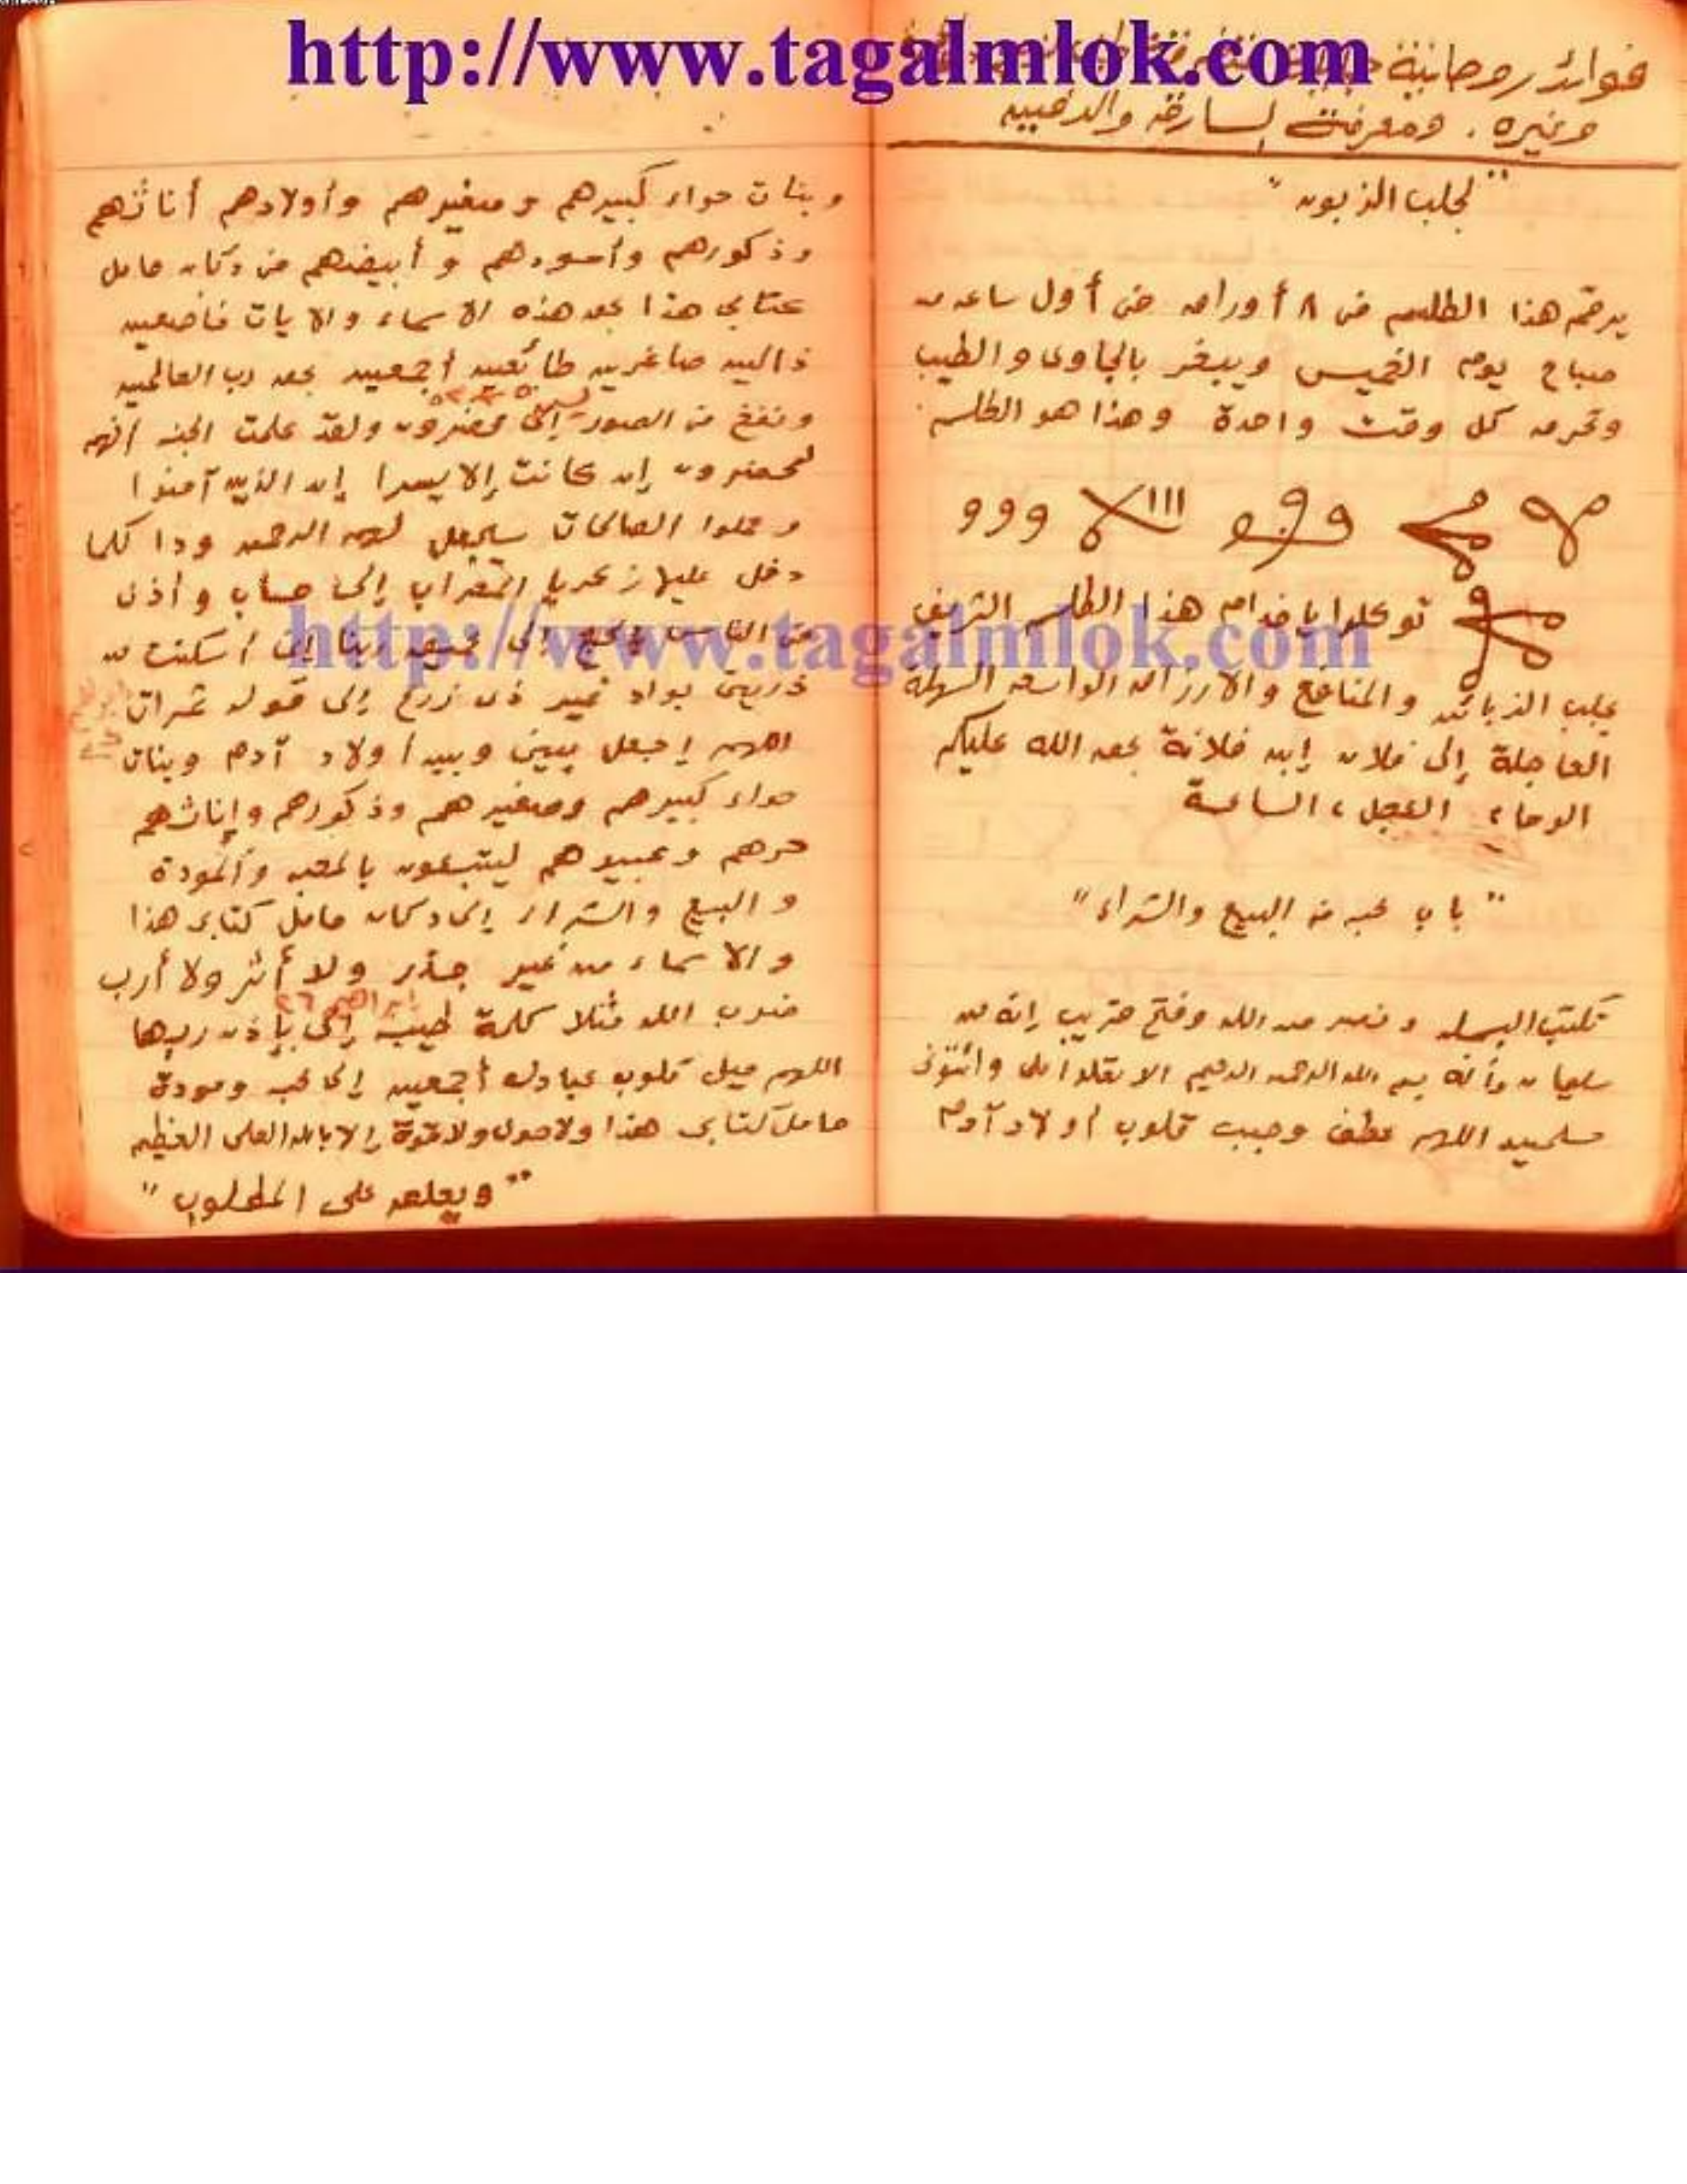 http://www.tagalmlok.com
فوائد روحانية
وغيره . ومعرفت لسارقه والدفين
" لجلب الزبون "
يرقم هذا الطلسم في ٨ أوراق في أول ساعه من
صباح يوم الخميس ويبخر بالجاوي والطيب
وتحرق كل وقت واحدة وهذا هو الطلسم
ووو
توكلوا يا خدام هذا الطلسم الشريف
بجلب الزبائن والمنافع والارزاق الواسعه السهلة
العاجلة إلى فلان إبن فلانة بحق الله عليكم
الوحاء العجل، الساعة
" باب محبه في البيع والشراء "
تكتب البسمله ونصر من الله وفتح قريب إنه من
سليمان وأنه بسم الله الرحمن الرحيم الا تعلوا على وائتونى
مسلمين اللهم عطف وحبب قلوب أولاد آدم
وبنات حواء كبيرهم وصغيرهم وأولادهم أناثهم
وذكورهم وأسودهم وأبيضهم في دكان حامل
كتابي هذا بحق هذه الاسماء والايات خاضعين
ذاليين صاغرين طائعين أجمعين بحق رب العالمين
ونفخ في الصور إلى محضرون ولقد علمت الجنه انهم
لمحضرون إن كانت إلا يسرا إن الذين آمنوا
وعملوا الصالحات سيجعل لهم الرحمن ودا كلما
دخل عليها زكريا المحراب إلى حساب وأذن
في الناس بالحج إلى عميق ربنا إني أسكنت من
ذريتي بواد غير ذي زرع إلى قوله ثمرات
اللهم إجعل بيني وبين أولاد آدم وبنات
حواء كبيرهم وصغيرهم وذكورهم وإناثهم
حرهم وعبيدهم ليتبعون بالمحبه والمودة
والبيع والشراء إلى دكان حامل كتابي هذا
والاسماء من غير جذر ولا أثر ولا أرب
ضرب الله مثلا كلمة طيبة إلى بإذن ربها
ابراهيم ٢٦
اللهم ميل قلوب عبادك أجمعين إلى محبه ومودة
حامل كتابي هذا ولا حول ولا قوة إلا بالله العلى العظيم
" ويعلق على المطلوب "
http://www.tagalmlok.com